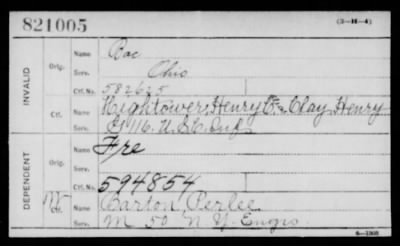 821005 (3-H-4)
INVALID
Orig. Name Roe
Serv. Ohio
Ctf. No. 582625
Ctf. Name Hightower, Henry C. Clay, Henry
Serv. G 116. U.S.C. Inf.
DEPENDENT
Orig. Name Fre
Serv.
Ctf. No. 594854
Ctf. Name Barton, Perlee
Serv. M 50 N Y. Engrs